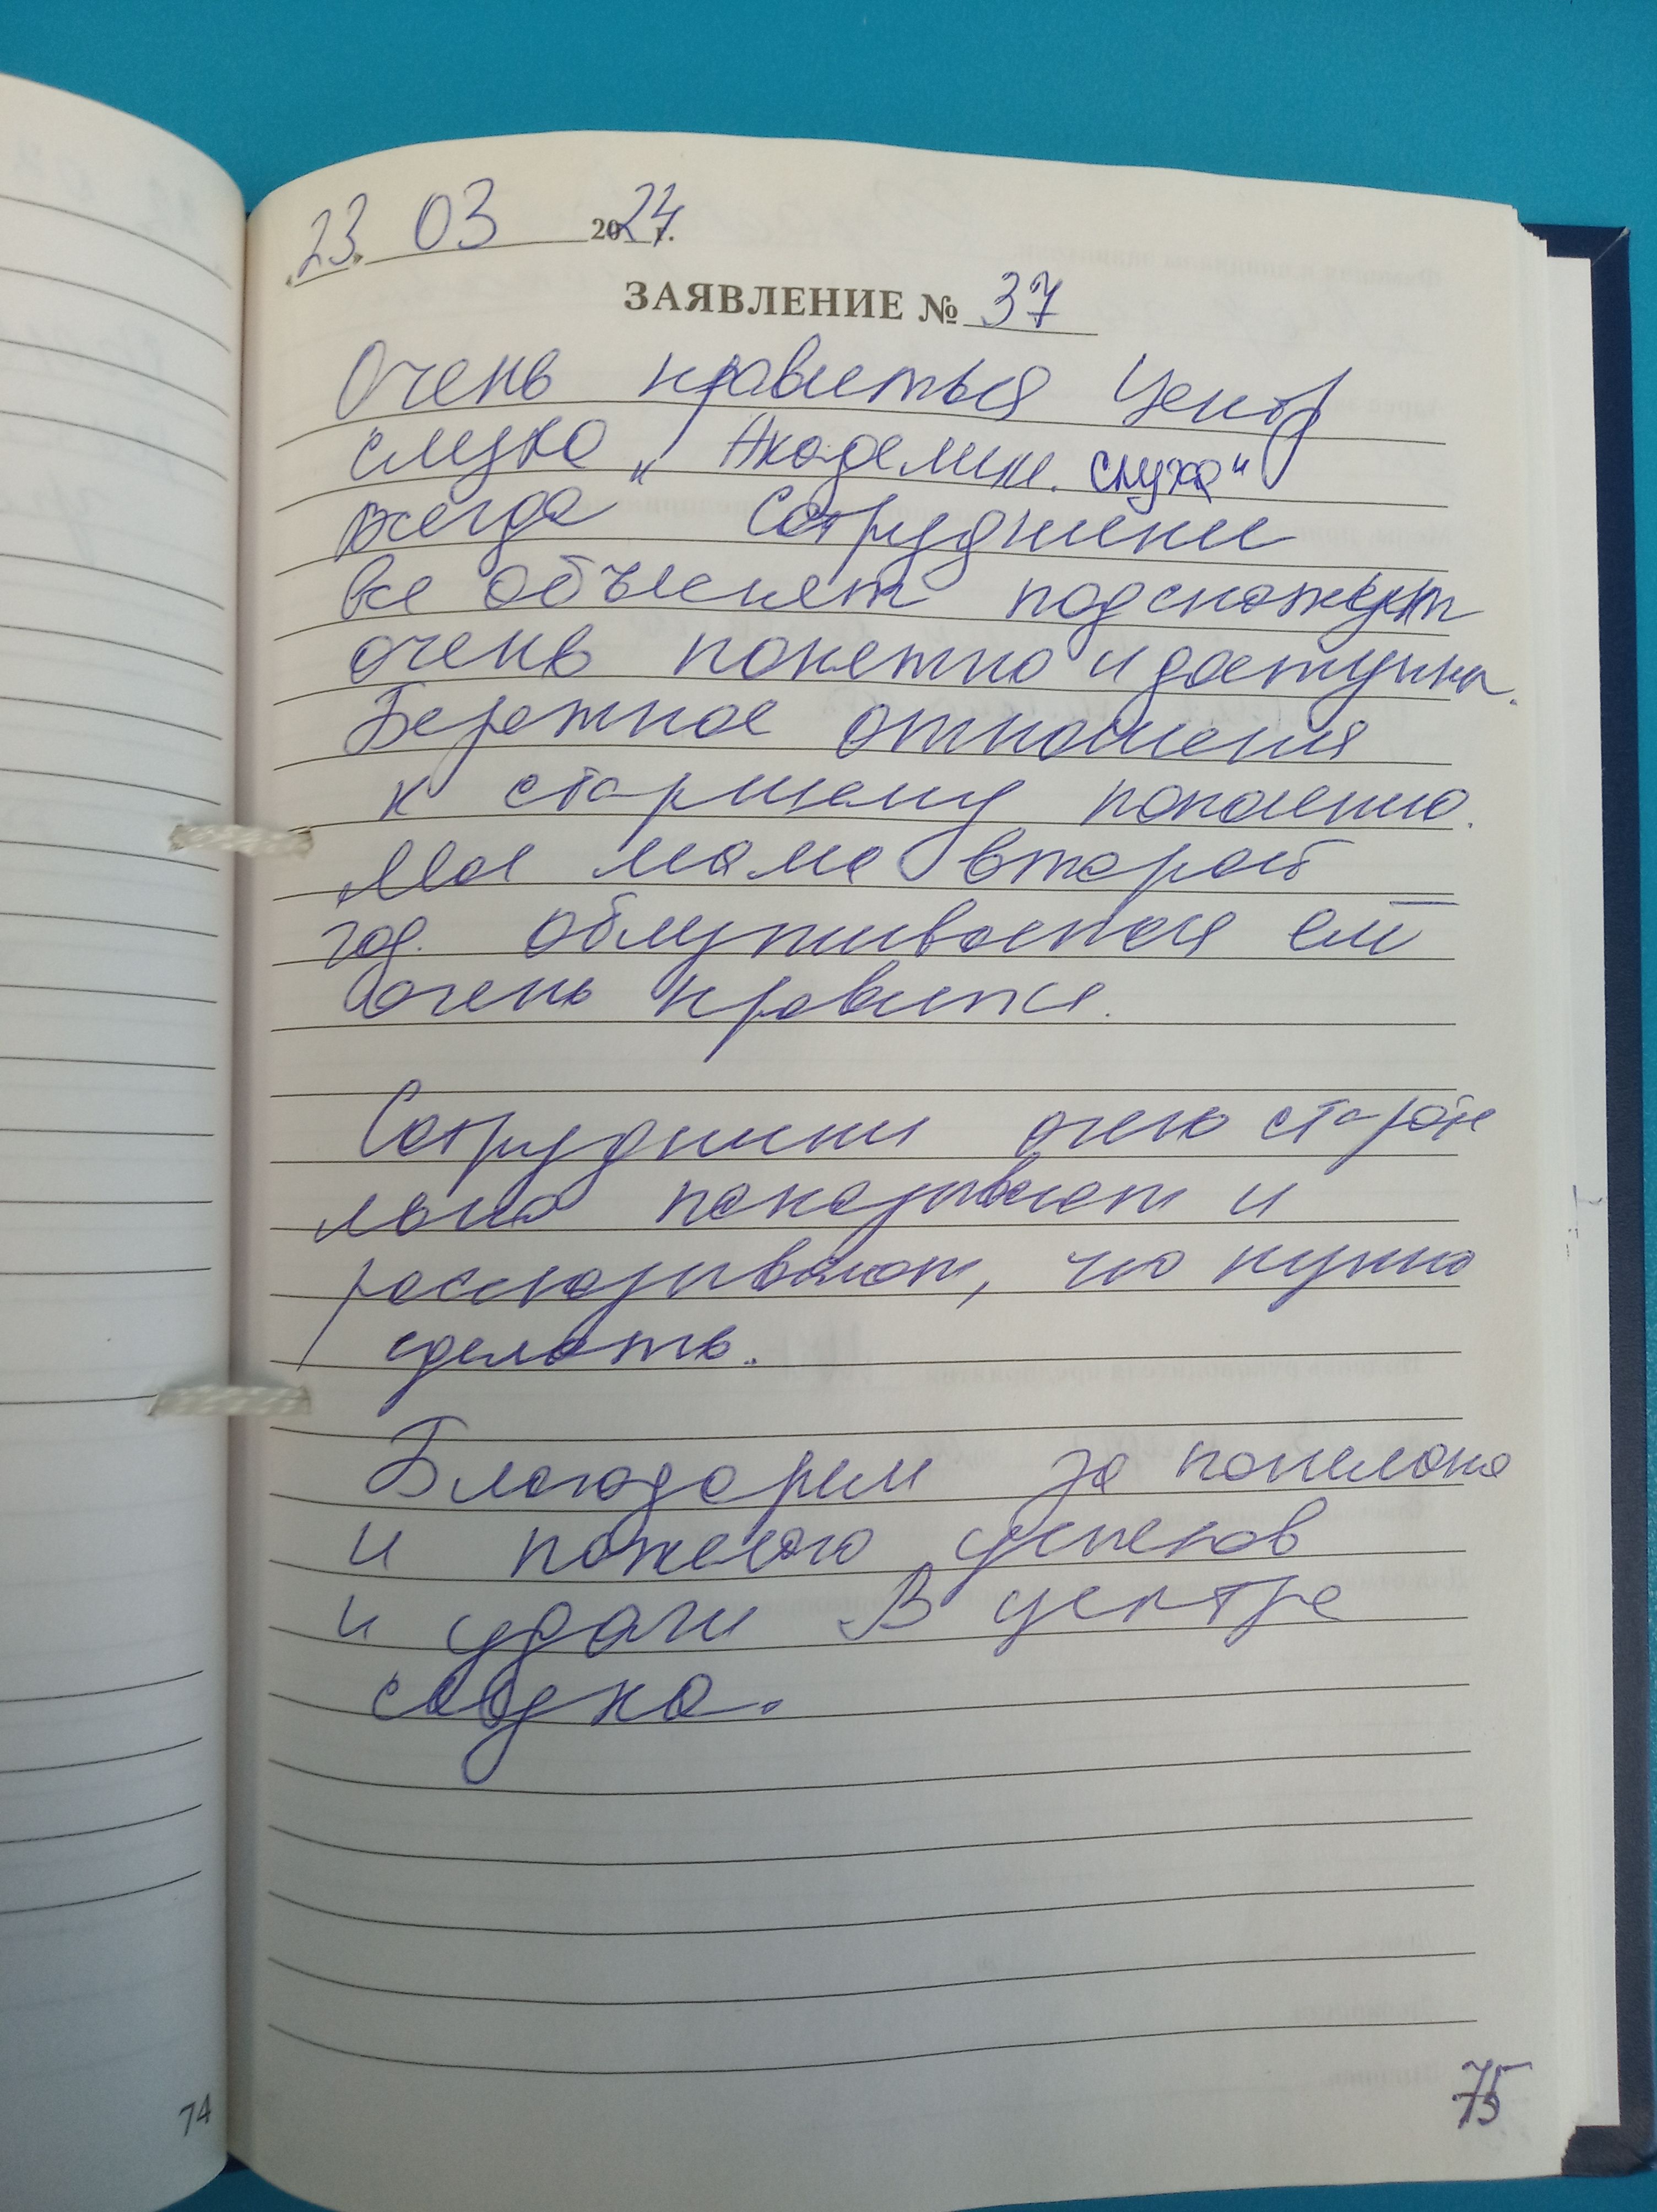 23. 03 2024 г.
ЗАЯВЛЕНИЕ № 37
Очень нравиться Центр
слуха "Академик. слуха"
всегда Сотрудники
все объяснят подскажут
очень понятно и доступна.
Бережное отношения
к старшему поколению.
Моя мама второй
год. облуживается ей
очень нравится.
Сотрудники очень старате
льно показывают и
рассказывают, что нужно
сделать.
Благодарим за
и пожелаю успехов
и удачи В центре
74
75